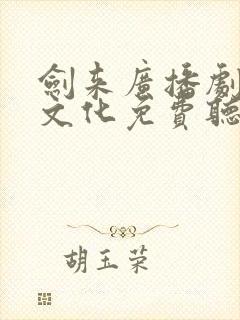 劍来廣播劇
文化免費聽
胡玉荣